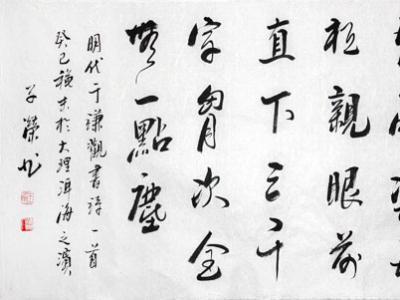 相親眼前
直下三千
字胷次全
無一點塵
明代于謙觀書詩一首
癸巳秋末於大理洱海之濱
子榮书